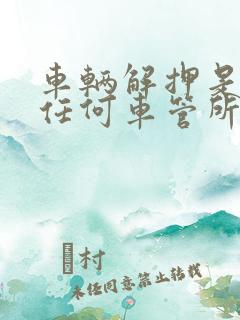 車輛解押是
任何車管所
村
未任同意禁止转载